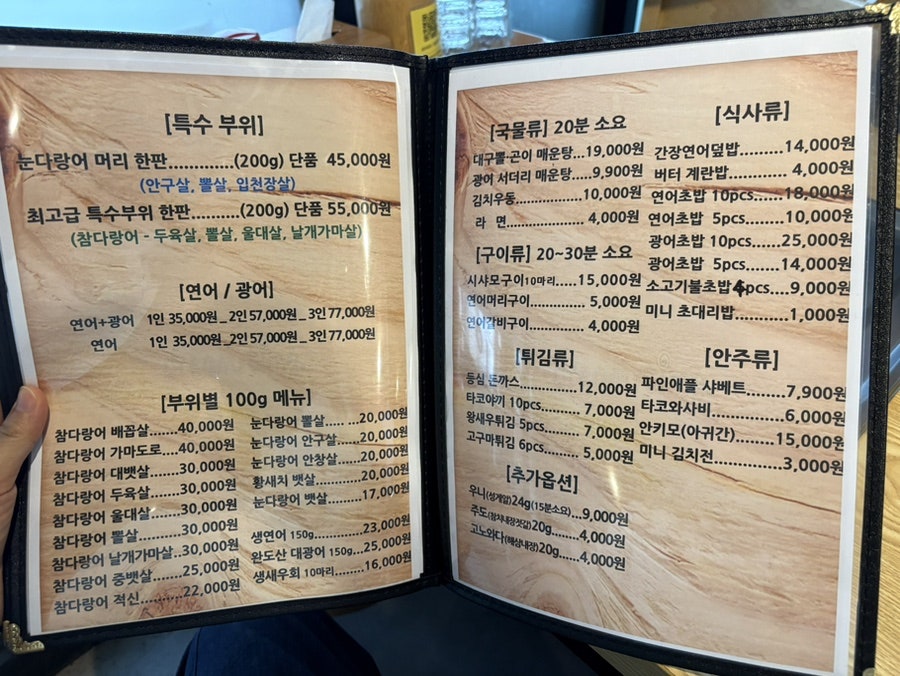 [특수 부위]
눈다랑어 머리 한판.............(200g) 단품 45,000원
(안구살, 뽈살, 입천장살)
최고급 특수부위 한판..........(200g) 단품 55,000원
(참다랑어 - 두육살, 뽈살, 울대살, 날개가마살)
[연어 / 광어]
연어+광어 1인 35,000원_2인 57,000원_3인 77,000원
연어 1인 35,000원_2인 57,000원_3인 77,000원
[부위별 100g 메뉴]
참다랑어 배꼽살.....40,000원
참다랑어 가마도로...40,000원
참다랑어 대뱃살......30,000원
참다랑어 두육살......30,000원
참다랑어 울대살......30,000원
참다랑어 뽈살..........30,000원
참다랑어 날개가마살..30,000원
참다랑어 중뱃살......25,000원
참다랑어 적신..........22,000원
눈다랑어 뽈살..... ...20,000원
눈다랑어 안구살...20,000원
눈다랑어 안창살...20,000원
황새치 뱃살..........20,000원
눈다랑어 뱃살......17,000원
생연어 150g............23,000원
완도산 대광어 150g...25,000원
생새우회 10마리........16,000원
[국물류] 20분 소요
대구뽈·곤이 매운탕...19,000원
광어 서더리 매운탕....9,900원
김치우동..............10,000원
라 면.................4,000원
[구이류] 20~30분 소요
시샤모구이10마리.....15,000원
연어머리구이............5,000원
연어갈비구이............4,000원
[튀김류]
등심 돈까스..............12,000원
타코야끼 10pcs.........7,000원
왕새우튀김 5pcs........7,000원
고구마튀김 6pcs........5,000원
[추가옵션]
우니(성게알)24g(15분소요)...9,000원
주도(참치내장젓갈)20g.......4,000원
고노와다(해삼내장)20g......4,000원
[식사류]
간장연어덮밥...........14,000원
버터 계란밥............. 4,000원
연어초밥 10pcs......18,000원
연어초밥 5pcs.......10,000원
광어초밥 10pcs......25,000원
광어초밥 5pcs.......14,000원
소고기불초밥4pcs....9,000원
미니 초대리밥...........1,000원
[안주류]
파인애플 샤베트.......7,900원
타코와사비..............6,000원
안키모(아귀간).........15,000원
미니 김치전..............3,000원